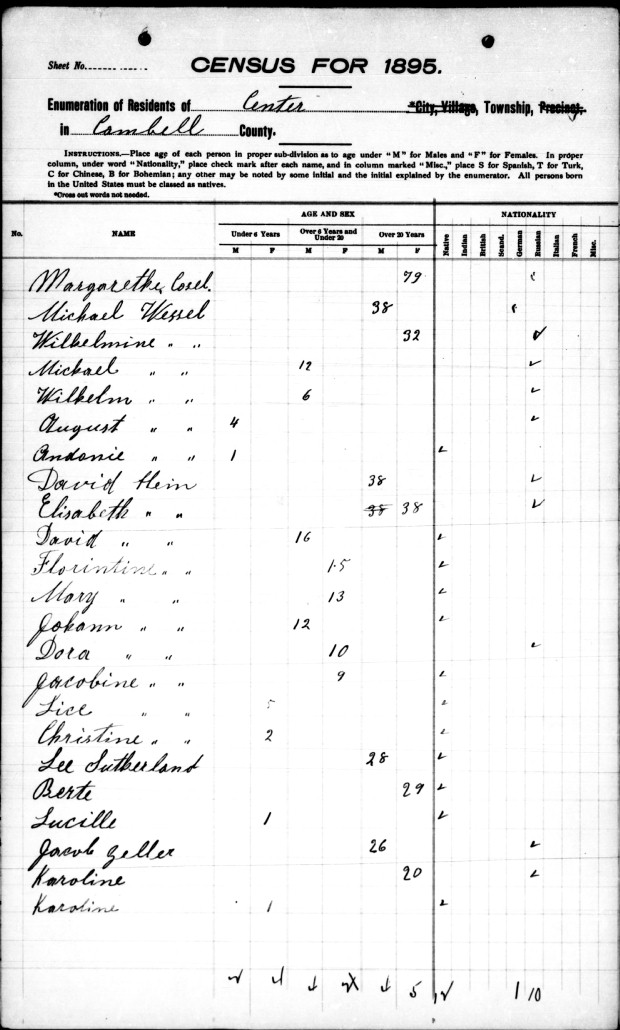 Sheet No.
CENSUS FOR 1895.
Enumeration of Residents of Center *City, Village, Township, Precinct.
in Cambell County.
INSTRUCTIONS.—Place age of each person in proper sub-division as to age under "M" for Males and "F" for Females. In proper
column, under word "Nationality," place check mark after each name, and in column marked "Misc.," place S for Spanish, T for Turk,
C for Chinese, B for Bohemian; any other may be noted by some initial and the initial explained by the enumerator. All persons born
in the United States must be classed as natives.
*Cross out words not needed.
AGE AND SEX NATIONALITY
No. NAME Under 6 Years Over 6 Years and Under 20 Over 20 Years Native Indian British Scand. German Russian Italian French Misc.
M F M F M F
Margarethe Cosel. 79
Michael Wessel 38
Wilhelmine " " 32 ✓
Michael " " 12 ✓
Wilhelm " " 6 ✓
August " " 4 ✓
Andonie " " 1 ✓
David Hein 38 ✓
Elisabeth " " 38 38 ✓
David " " 16 ✓
Florintine " " 15 ✓
Mary " " 13 ✓
Johann " " 12 ✓
Dora " " 10 ✓
Jacobine " " 9 ✓
Lice " " 5 ✓
Christine " " 2 ✓
Lee Sutherland 28 ✓
Berte 29 ✓
Lucille 1 ✓
Jacob Zeller 26 ✓
Karoline 20 ✓
Karoline 1 ✓
5 1 10